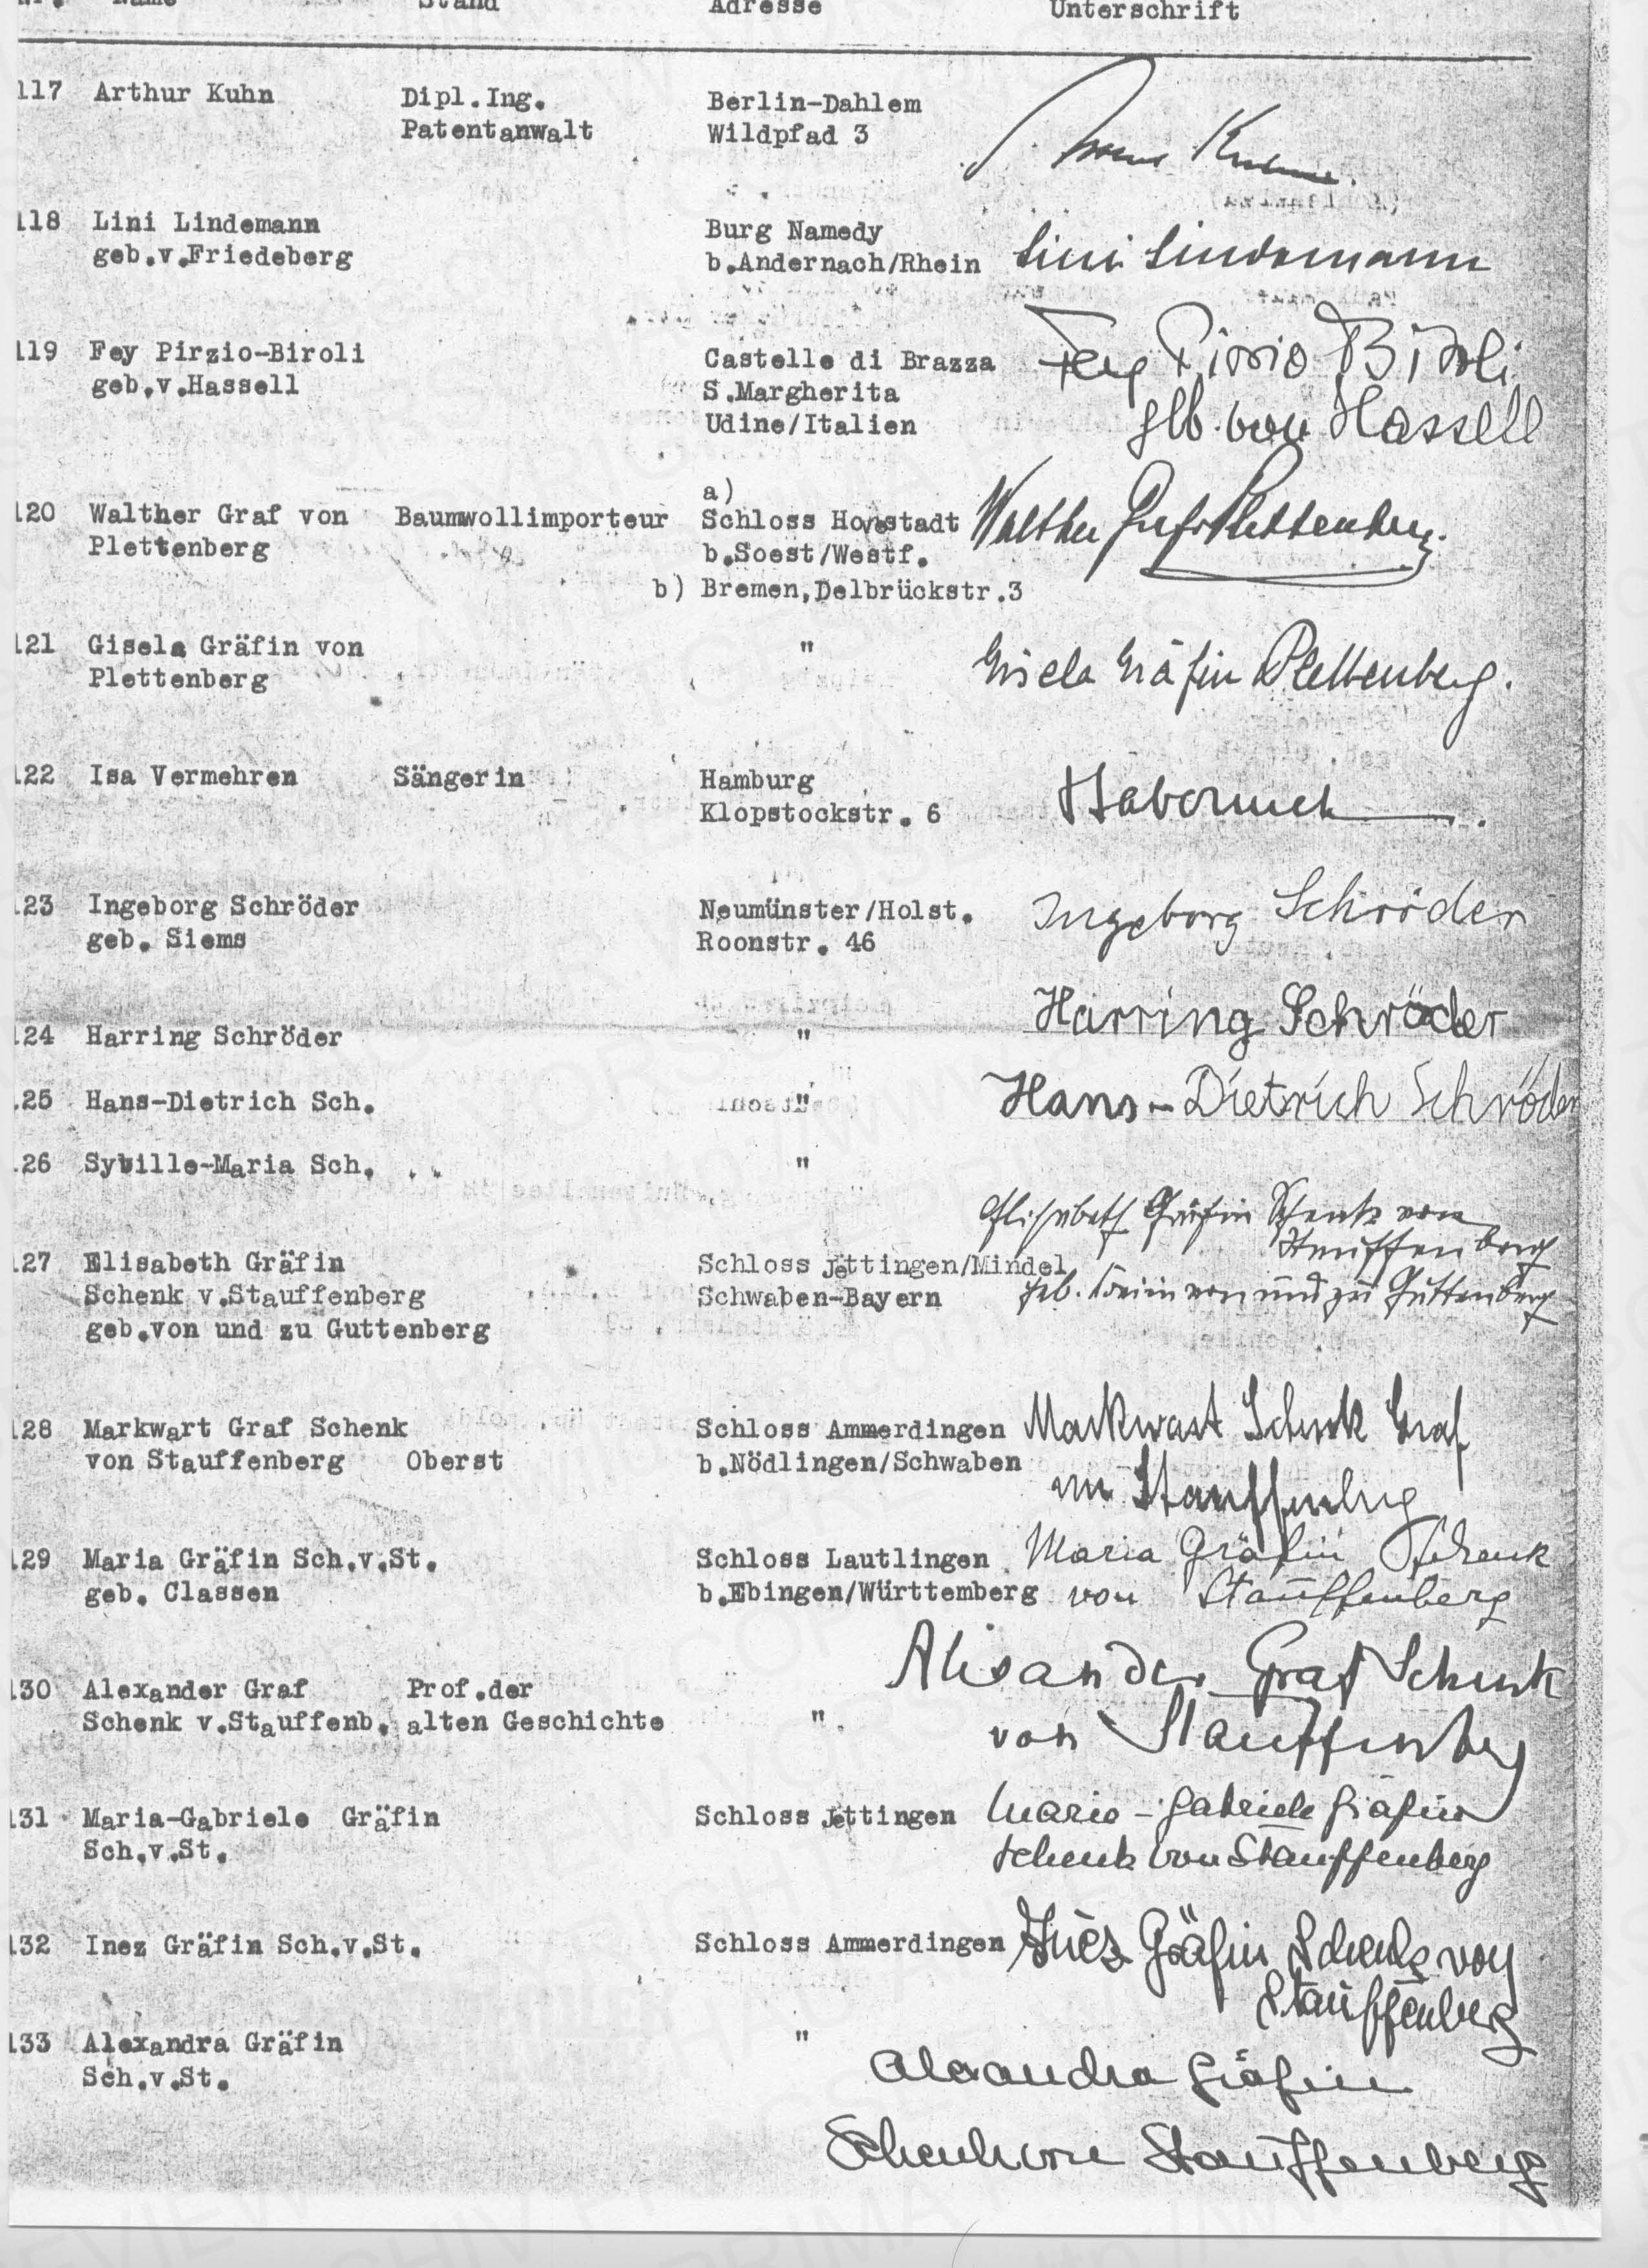 Nr. Name Stand Adresse Unterschrift
117 Arthur Kuhn Dipl.Ing. Berlin-Dahlem
Patentanwalt Wildpfad 3
118 Lini Lindemann Burg Namedy
geb.v.Friedeberg b.Andernach/Rhein Lini Lindemann
119 Fey Pirzio-Biroli Castello di Brazza Fey Pirzio Biroli
geb.v.Hassell S.Margherita
Udine/Italien geb. von Hassell
a)
120 Walther Graf von Baumwollimporteur Schloss Hovestadt Walther Graf Plettenberg.
Plettenberg b.Soest/Westf.
b) Bremen,Delbrückstr.3
121 Gisela Gräfin von " Gisela Gräfin Plettenberg.
Plettenberg
122 Isa Vermehren Sängerin Hamburg
Klopstockstr. 6
123 Ingeborg Schröder Neumünster/Holst. Ingeborg Schröder
geb. Siems Roonstr. 46
124 Harring Schröder " Harring Schröder
125 Hans-Dietrich Sch. " Hans-Dietrich Schröder
126 Sybille-Maria Sch. "
Elisabeth Gräfin Schenk von
Stauffenberg
127 Elisabeth Gräfin Schloss Jettingen/Mindel
Schenk v.Stauffenberg Schwaben-Bayern geb. von und zu Guttenberg
geb.von und zu Guttenberg
128 Markwart Graf Schenk Schloss Ammerdingen Markwart Schenk Graf
von Stauffenberg Oberst b.Nödlingen/Schwaben von Stauffenberg
129 Maria Gräfin Sch.v.St. Schloss Lautlingen Maria Gräfin Schenk
geb. Classen b.Ebingen/Württemberg von Stauffenberg
130 Alexander Graf Prof.der Alexander Graf Schenk
Schenk v.Stauffenb. alten Geschichte " von Stauffenberg
131 Maria-Gabriele Gräfin Schloss Jettingen Maria-Gabriele Gräfin
Sch.v.St. Schenk von Stauffenberg
132 Inez Gräfin Sch.v.St. Schloss Ammerdingen Inèz Gräfin Schenk von
Stauffenberg
133 Alexandra Gräfin "
Sch.v.St. Alexandra Gräfin
Schenk von Stauffenberg